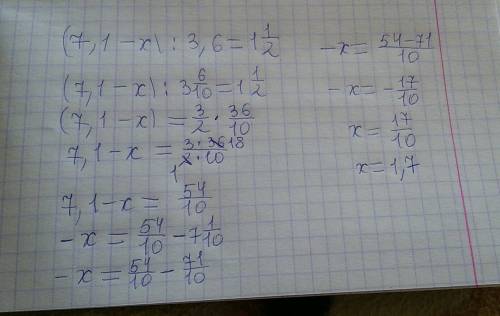 (7,1-x) : 3,6 = 1 1/2
(7,1-x) : 3 6/10 = 1 1/2
(7,1-x) = 3/2 · 36/10
7,1-x = 3·36 18/2·10 1
7,1-x = 54/10
-x = 54/10 - 7 1/10
-x = 54/10 - 71/10
-x = 54-71/10
-x = -17/10
x = 17/10
x = 1,7